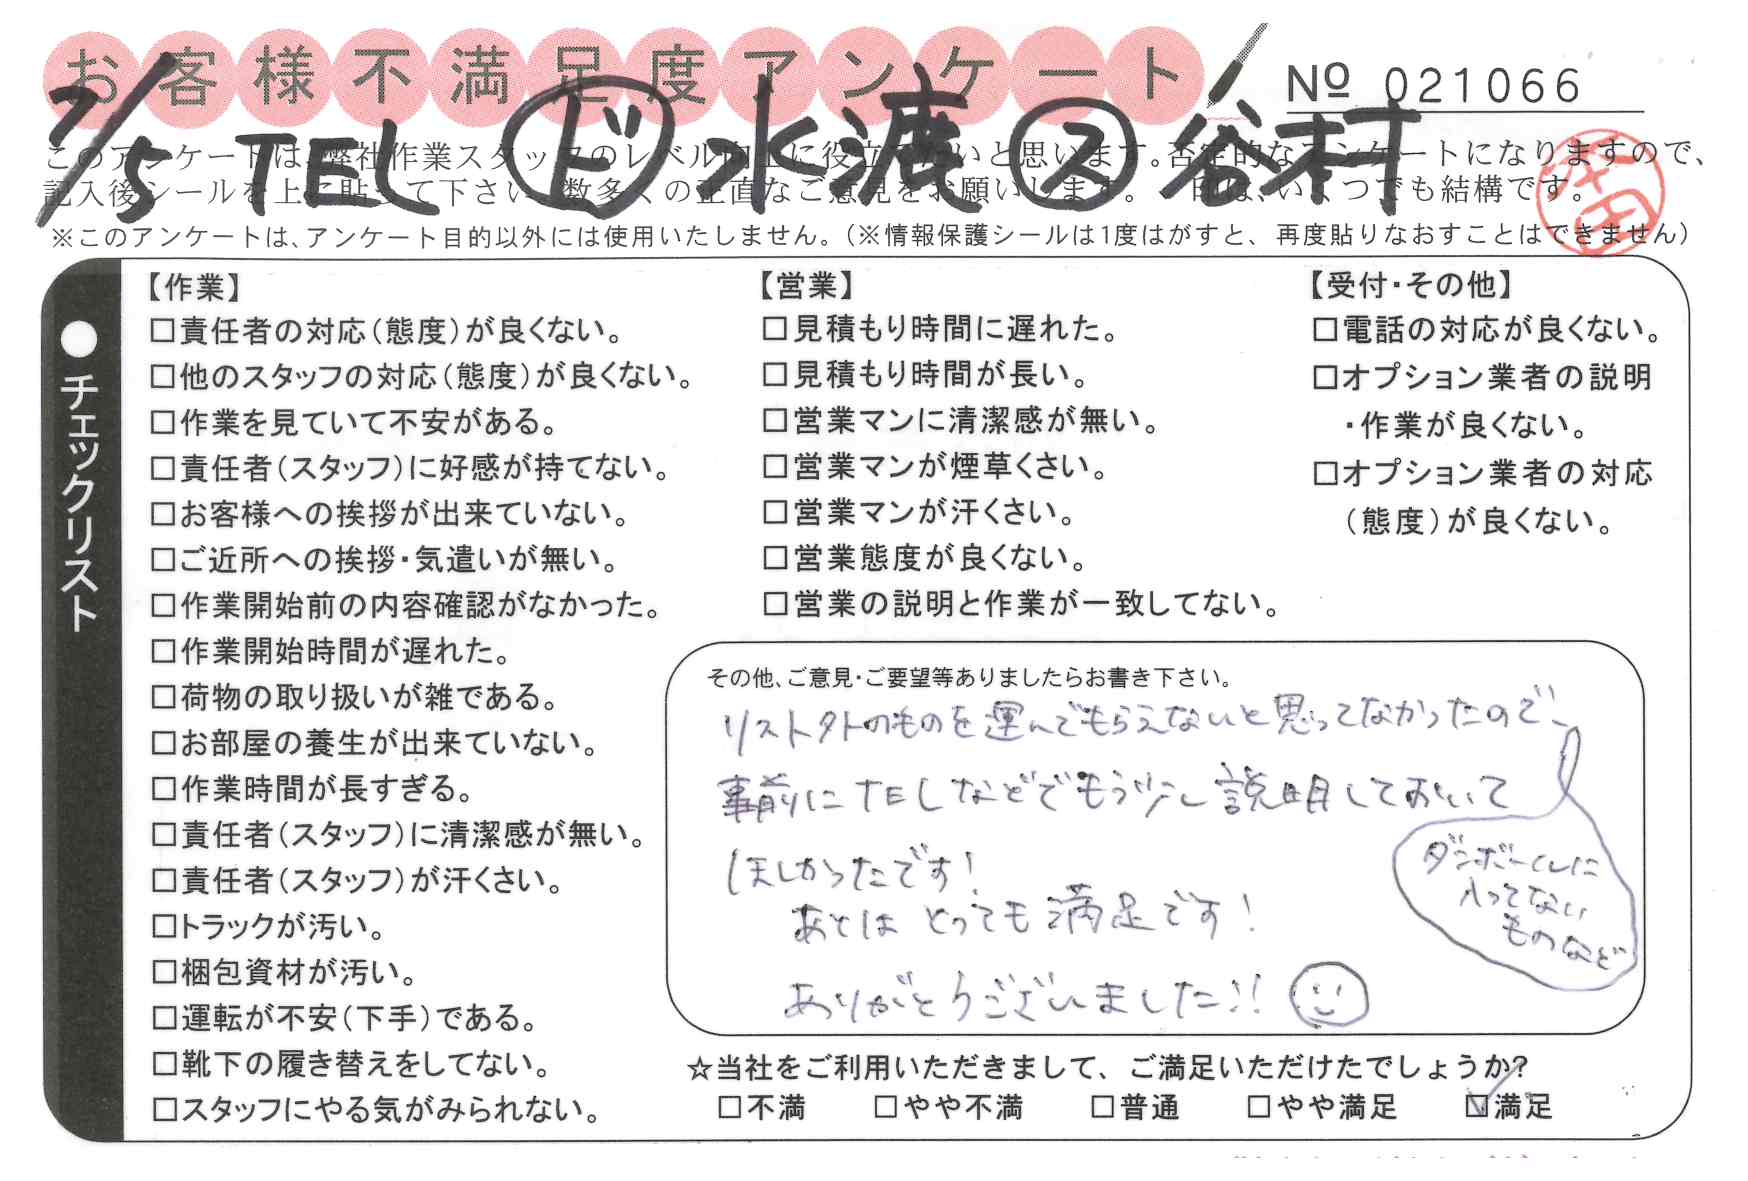 お客様不満足度アンケート
№ 021066
7/5 TEL ㋣ 水漉 ㋜ 谷村
このアンケートは、弊社作業スタッフのレベル向上に役立てたいと思います。否定的なアンケートになりますので、
記入後シールを上に貼って下さい。数多くの正直なご意見をお願いします。✓印は、いくつでも結構です。
※このアンケートは、アンケート目的以外には使用いたしません。（※情報保護シールは1度はがすと、再度貼りなおすことはできません）
●チェックリスト
【作業】
□責任者の対応（態度）が良くない。
□他のスタッフの対応（態度）が良くない。
□作業を見ていて不安がある。
□責任者（スタッフ）に好感が持てない。
□お客様への挨拶が出来ていない。
□ご近所への挨拶・気遣いが無い。
□作業開始前の内容確認がなかった。
□作業開始時間が遅れた。
□荷物の取り扱いが雑である。
□お部屋の養生が出来ていない。
□作業時間が長すぎる。
□責任者（スタッフ）に清潔感が無い。
□責任者（スタッフ）が汗くさい。
□トラックが汚い。
□梱包資材が汚い。
□運転が不安（下手）である。
□靴下の履き替えをしてない。
□スタッフにやる気がみられない。
【営業】
□見積もり時間に遅れた。
□見積もり時間が長い。
□営業マンに清潔感が無い。
□営業マンが煙草くさい。
□営業マンが汗くさい。
□営業態度が良くない。
□営業の説明と作業が一致してない。
【受付・その他】
□電話の対応が良くない。
□オプション業者の説明
・作業が良くない。
□オプション業者の対応
（態度）が良くない。
その他、ご意見・ご要望等ありましたらお書き下さい。
リスト外のものを運んでもらえないと思ってなかったので、
事前にTELなどでもう少し説明しておいて
ほしかったです！
あとはとっても満足です！
ありがとうございました!!
ダンボールに
入ってない
ものなど
☆当社をご利用いただきまして、ご満足いただけたでしょうか?
□不満 □やや不満 □普通 □やや満足 ☑満足